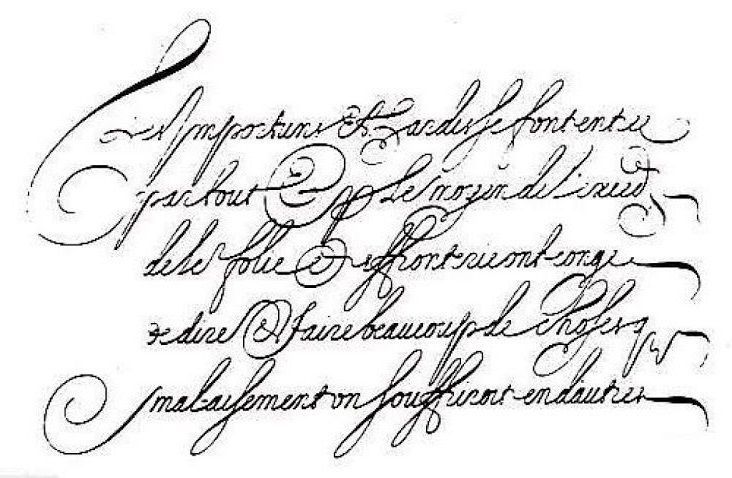 Les Importuns et hardis se font entree
partout et p le moyen de l'exceds
de le folie et effronterie ont conge
de dire et faire beaucoup de choses q
malaisement on souffriroit en dautres